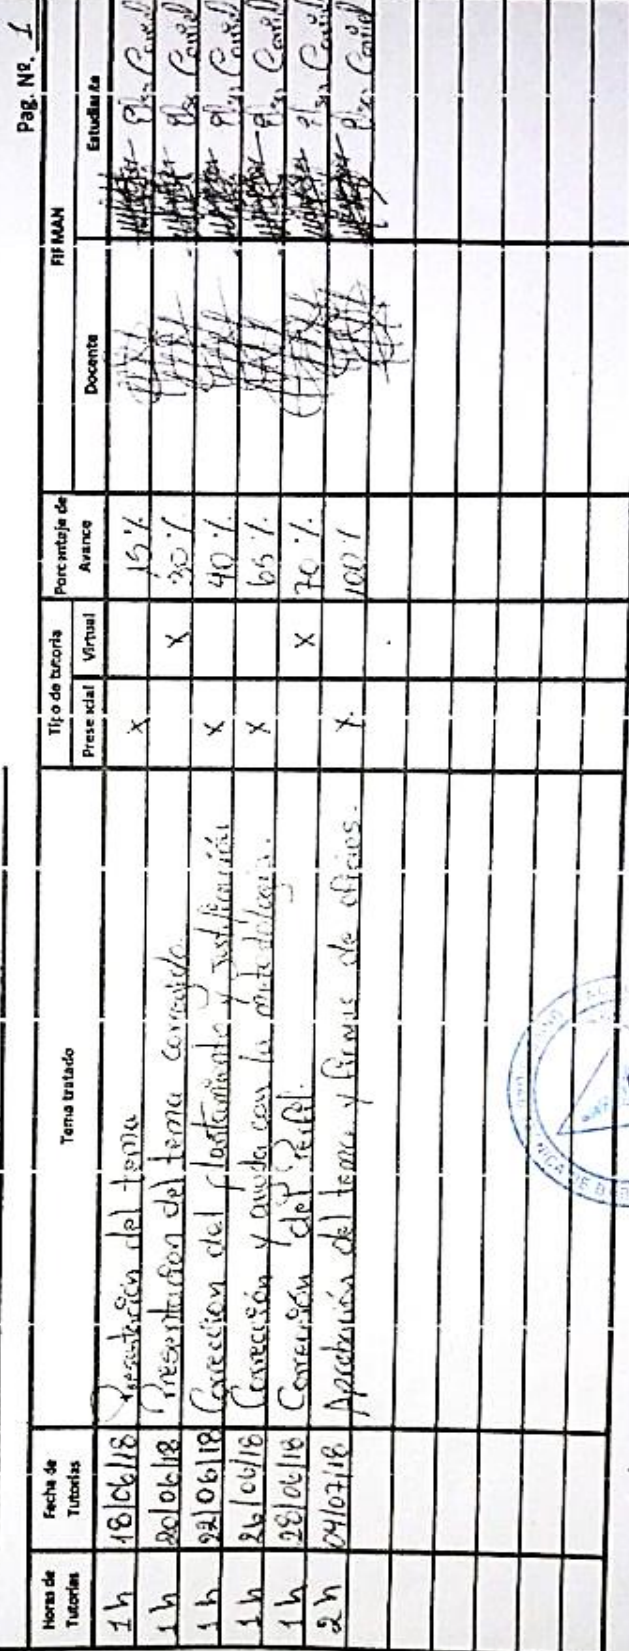 Pag. Nº. 1
Horas de Tutorías Fecha de Tutorías Tema tratado Tipo de tutoria Porcentaje de Avance FIRMAN
Presencial Virtual Docente Estudiante
1 h 18/06/18 Presentación del tema X 15 %
1 h 20/06/18 Presentacion del tema corregido. X 30 %
1 h 22/06/18 Correccion del planteamiento y justificación X 40 %
1 h 26/06/18 Corrección y ayuda con la metodología. X 65 %
1 h 28/06/18 Corrección del Perfil. X 70 %
2 h 04/07/18 Aprobación del tema y firmas de oficios. X 100 %